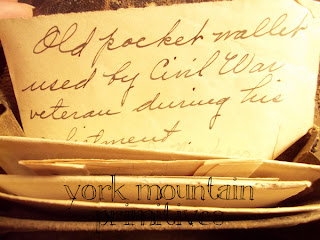 Old pocket wallet
used by Civil War
veteran during his
york mountain
primitives